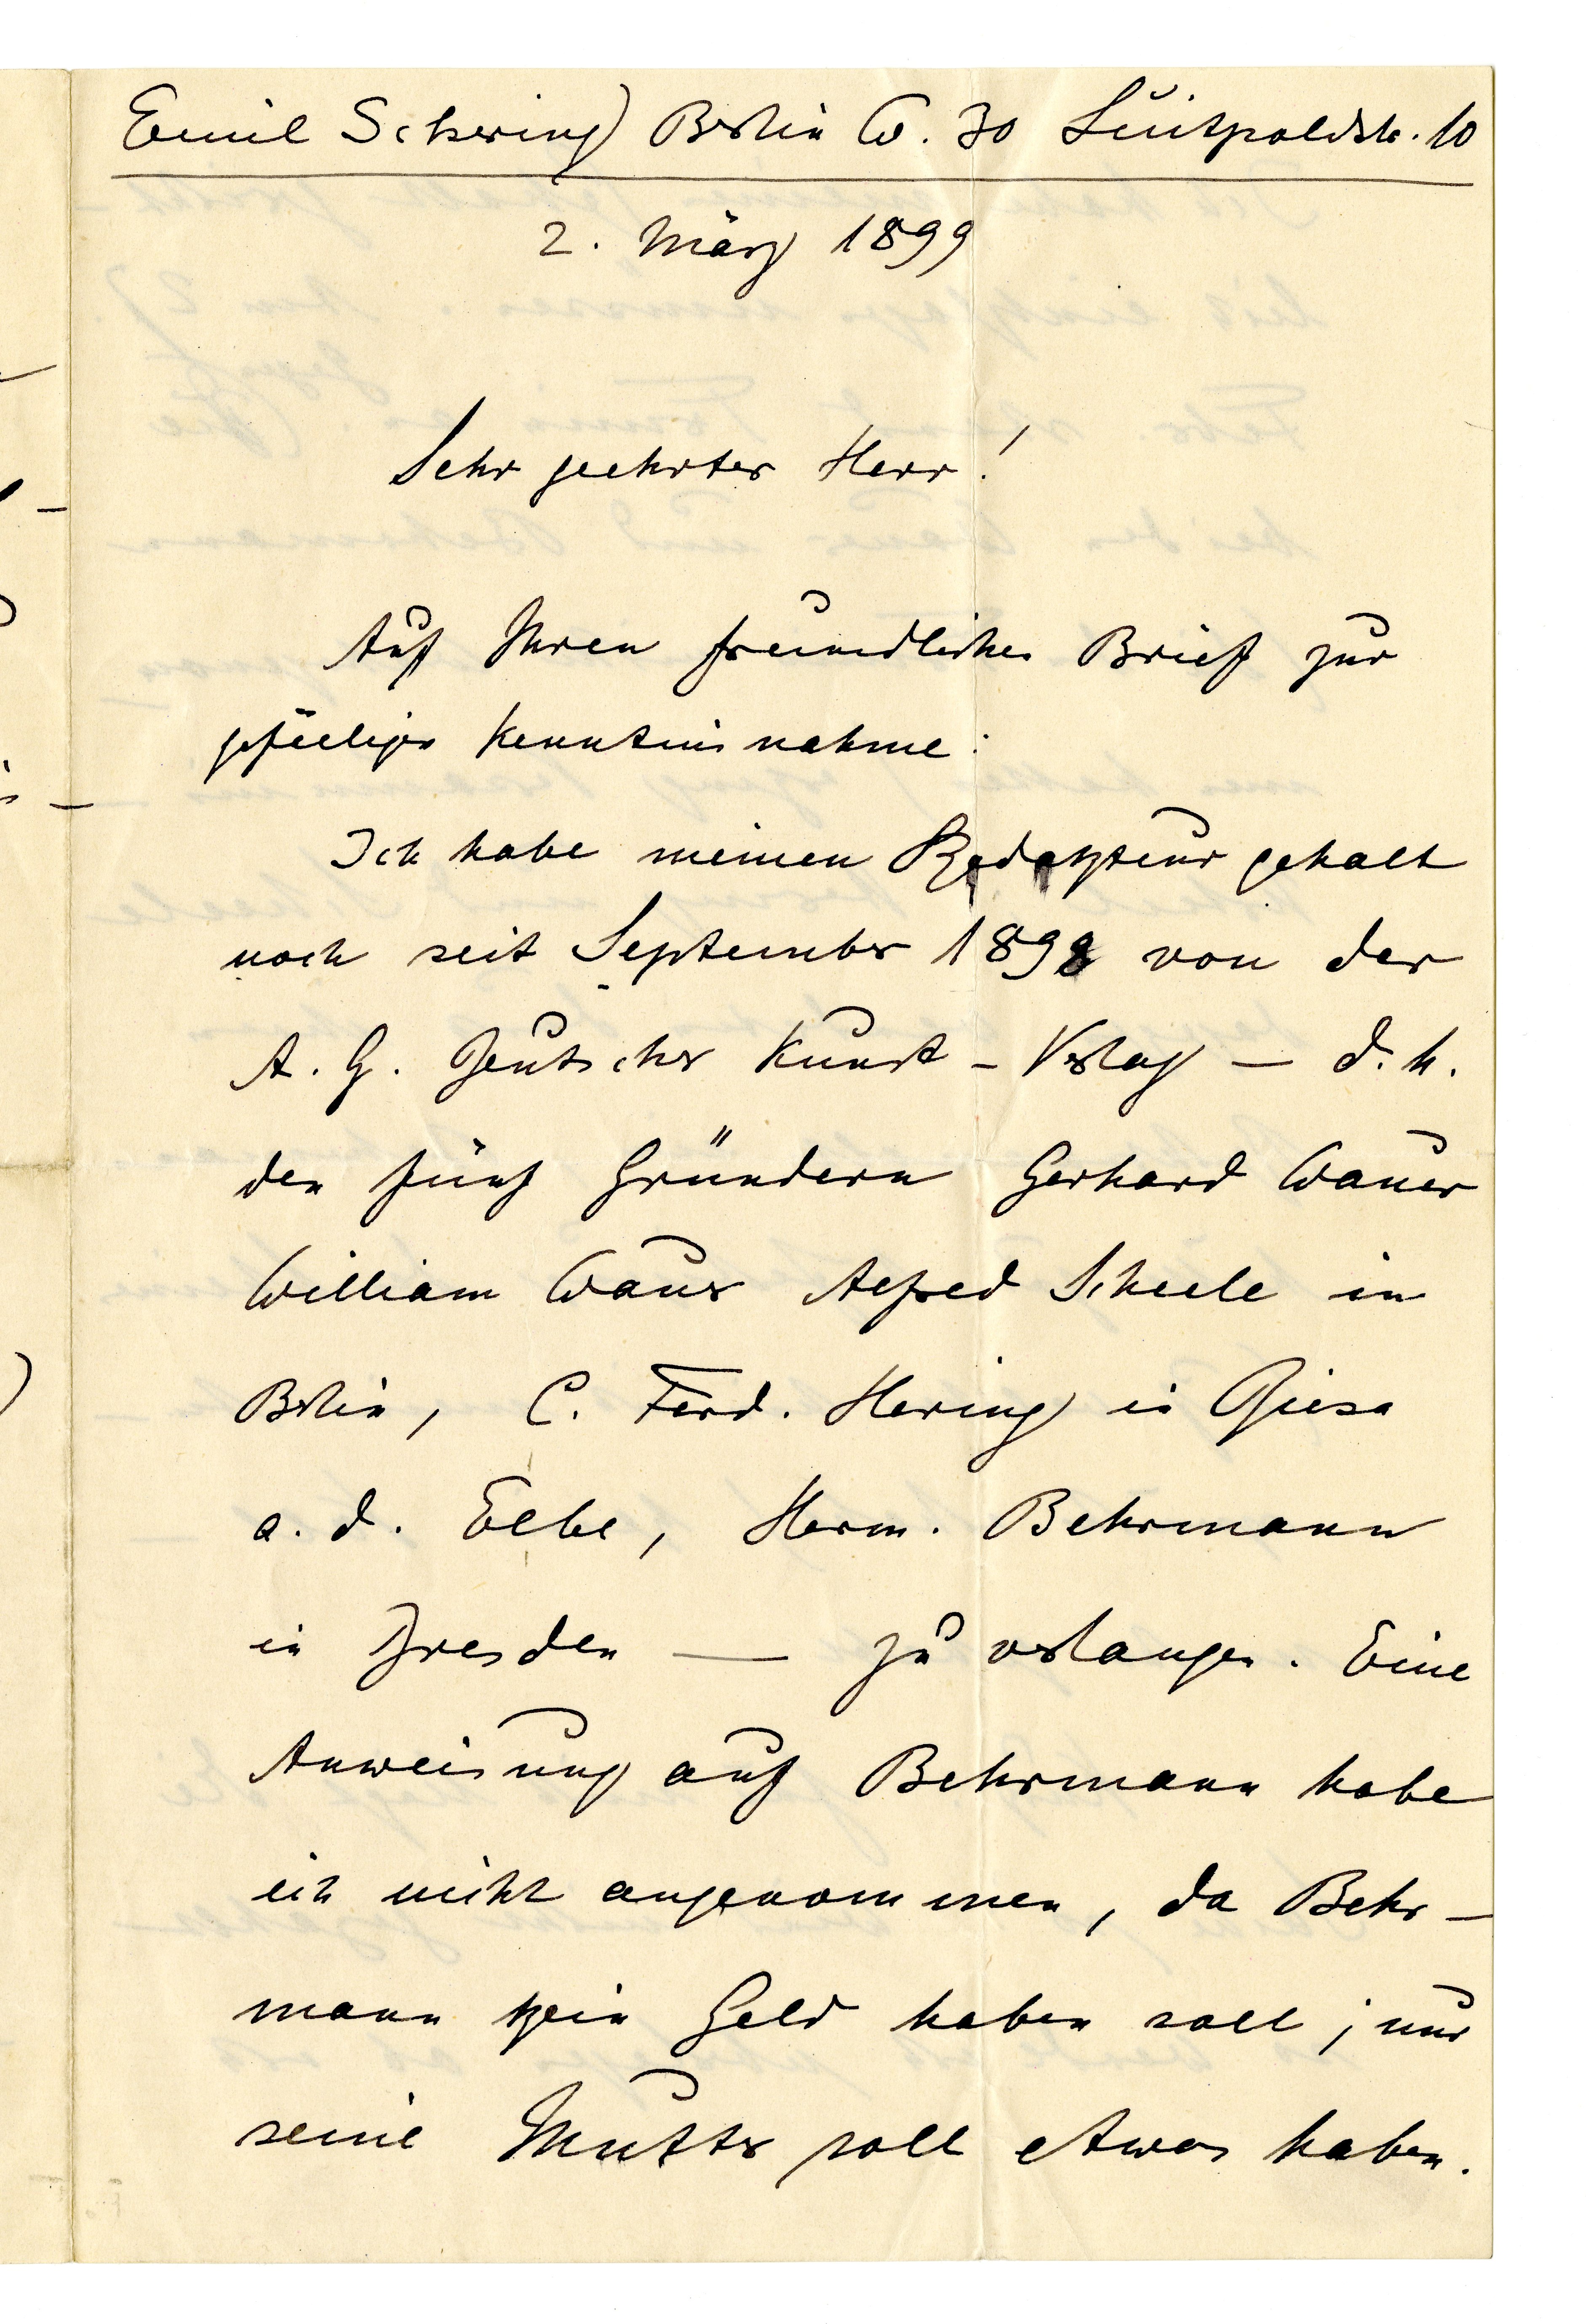 Emil Schering Berlin W. 30 Luitpoldstr. 10
2. März 1899
Sehr geehrter Herr!
Auf Ihren freundlichen Brief zur
gefälligen Kenntnisnahme:
Ich habe meinen Redakteurgehalt
noch seit September 1898 von der
A. G. Deutscher Kunst-Verlag — d. h.
den fünf Gründern Gerhard Wauer
William Wauer Alfred Scheele in
Berlin, C. Ferd. Hering in Riesa
a. d. Elbe, Herm. Behrmann
in Dresden — zu verlangen. Eine
Anweisung auf Behrmann habe
ich nicht angenommen, da Behr-
mann kein Geld haben soll; nur
seine Mutter soll etwas haben.